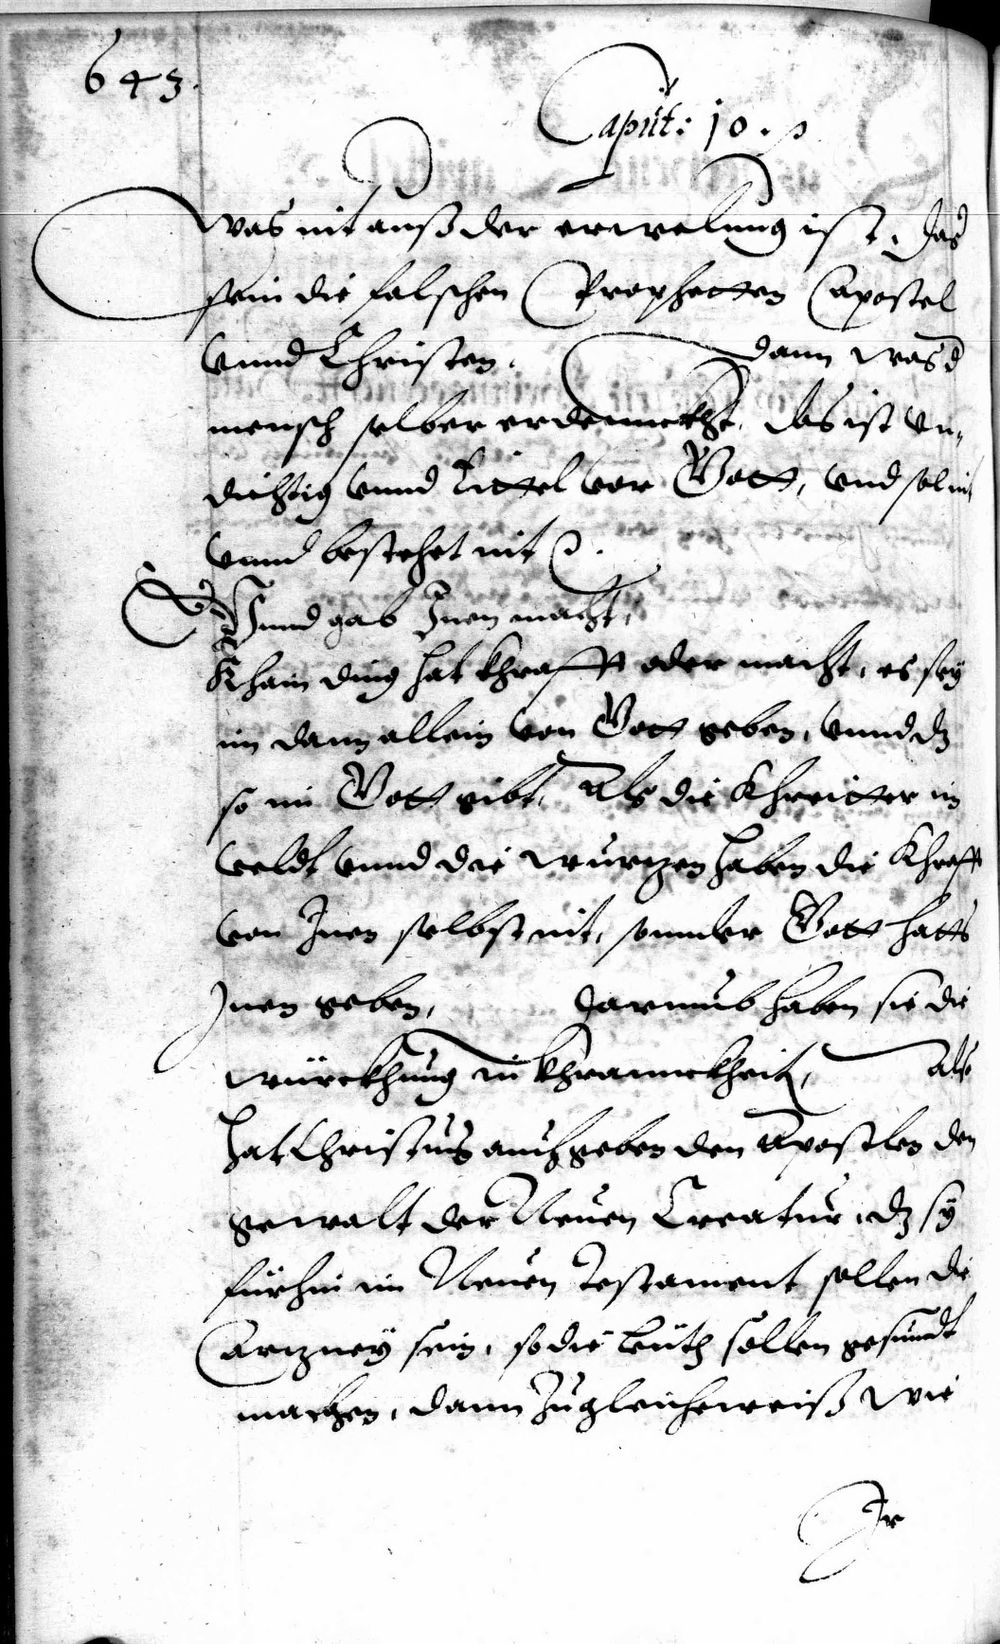 643.
Caput: 10.
Was nit auß der erwelung ist, das
sein die falschen Prophetten Apostel
vnnd Christen. dann was d
mensch selber erdennckht, das ist vn„
dichtig vnnd Eittel vor Gott, vnd sol nit
vnnd bestehet nit
Vnnd gab Inen macht,
Khain ding hat khrafft oder macht, es sey
im dann allein von Gott geben, vnnd dz
so im Gott gibt, Als die Khreitter im
veldt vnnd die wurtzen haben die Khrafft
von Inen selbst nit, sonnder Gott hatts
Inen geben, darumb haben sie die
würckhung in khrannckheit, also
hat Christus auch geben den Apostlen den
gewalt der Neuen Creatur, dz sy
fürhin im Neuen Testament sollen die
Artzney sein, so die leuth sollen gesundt
machen, dann zu gleicherweiß wie
Ir